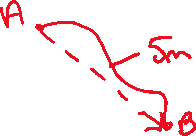 A
5m
B